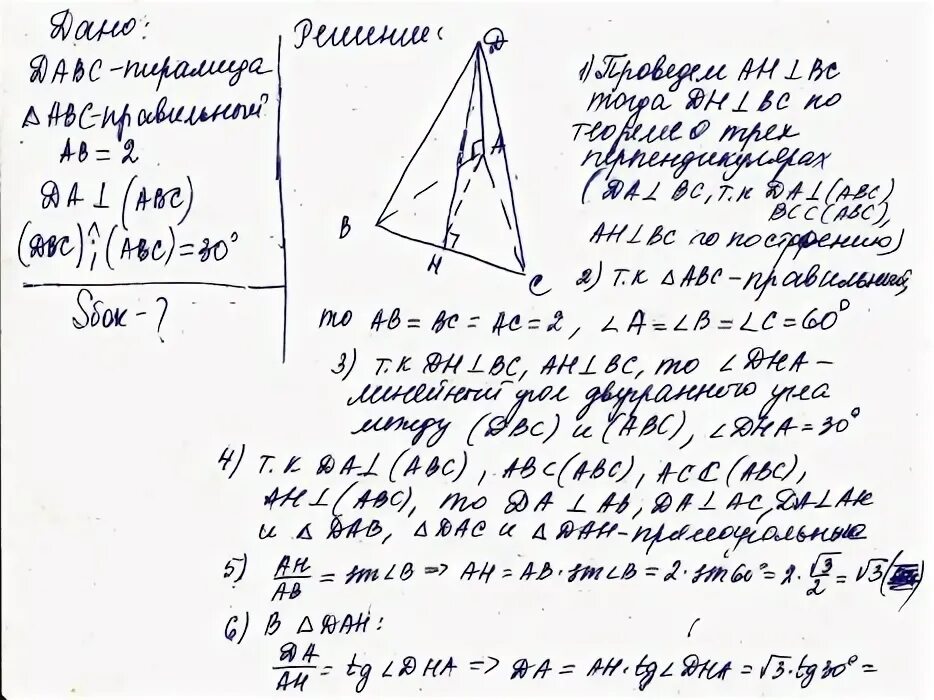 Дано:
DABC-пирамида
△ABC-правильный
AB = 2
DA ⊥ (ABC)
(DBC)^;(ABC)=30°
Sбок-?
Решение:
D
A
B
H
C
1) Проведем AH⊥BC
тогда DH⊥BC по
теореме о трех
перпендикулярах
(DA⊥BC, т.к DA⊥(ABC)
BC⊂(ABC),
AH⊥BC по построению)
2) т.к △ABC-правильный,
то AB = BC = AC = 2, ∠A = ∠B = ∠C = 60°
3) т.к DH⊥BC, AH⊥BC, то ∠DHA-
линейный угол двугранного угла
между (DBC) и (ABC), ∠DHA=30°
4) т.к DA⊥(ABC), ABC(ABC), AC⊂(ABC),
AH⊥(ABC), то DA⊥AB, DA⊥AC, DA⊥AH
и △DAB, △DAC и △DAH-прямоугольные
5) AH/AB = sin∠B => AH = AB·sin∠B = 2·sin60° = 2·√3/2 = √3
6) В △DAH:
DA/AH = tg∠DHA => DA = AH·tg∠DHA = √3·tg30° =